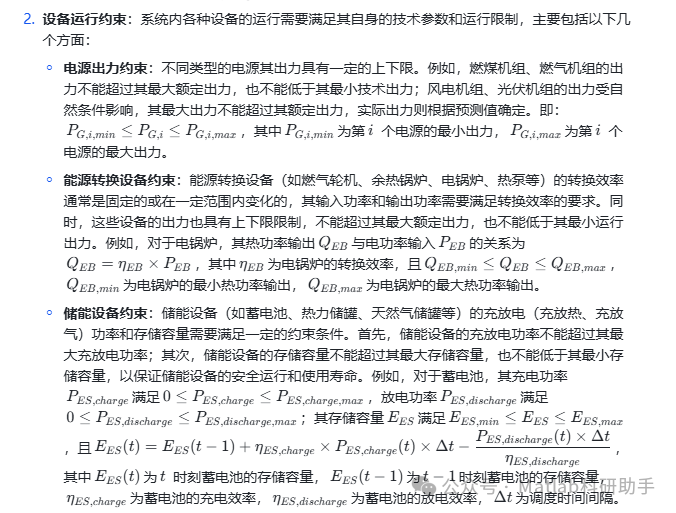 2. 设备运行约束：系统内各种设备的运行需要满足其自身的技术参数和运行限制，主要包括以下几
个方面：
电源出力约束：不同类型的电源其出力具有一定的上下限。例如，燃煤机组、燃气机组的出
力不能超过其最大额定出力，也不能低于其最小技术出力；风电机组、光伏机组的出力受自
然条件影响，其最大出力不能超过其额定出力，实际出力则根据预测值确定。即：
P_{G,i,min} ≤ P_{G,i} ≤ P_{G,i,max}，其中 P_{G,i,min} 为第 i 个电源的最小出力， P_{G,i,max} 为第 i 个
电源的最大出力。
能源转换设备约束：能源转换设备（如燃气轮机、余热锅炉、电锅炉、热泵等）的转换效率
通常是固定的或在一定范围内变化的，其输入功率和输出功率需要满足转换效率的要求。同
时，这些设备的出力也具有上下限限制，不能超过其最大额定出力，也不能低于其最小运行
出力。例如，对于电锅炉，其热功率输出 Q_{EB} 与电功率输入 P_{EB} 的关系为
Q_{EB} = η_{EB} × P_{EB}，其中 η_{EB} 为电锅炉的转换效率，且 Q_{EB,min} ≤ Q_{EB} ≤ Q_{EB,max}，
Q_{EB,min} 为电锅炉的最小热功率输出， Q_{EB,max} 为电锅炉的最大热功率输出。
储能设备约束：储能设备（如蓄电池、热力储罐、天然气储罐等）的充放电（充放热、充放
气）功率和存储容量需要满足一定的约束条件。首先，储能设备的充放电功率不能超过其最
大充放电功率；其次，储能设备的存储容量不能超过其最大存储容量，也不能低于其最小存
储容量，以保证储能设备的安全运行和使用寿命。例如，对于蓄电池，其充电功率
P_{ES,charge} 满足 0 ≤ P_{ES,charge} ≤ P_{ES,charge,max}，放电功率 P_{ES,discharge} 满足
0 ≤ P_{ES,discharge} ≤ P_{ES,discharge,max}；其存储容量 E_{ES} 满足 E_{ES,min} ≤ E_{ES} ≤ E_{ES,max}
，且 E_{ES}(t) = E_{ES}(t − 1) + η_{ES,charge} × P_{ES,charge}(t) × Δt − \frac{P_{ES,discharge}(t) × Δt}{η_{ES,discharge}}，
其中 E_{ES}(t) 为 t 时刻蓄电池的存储容量， E_{ES}(t − 1) 为 t − 1 时刻蓄电池的存储容量，
η_{ES,charge} 为蓄电池的充电效率， η_{ES,discharge} 为蓄电池的放电效率， Δt 为调度时间间隔。
公众号·Matlab科研助手